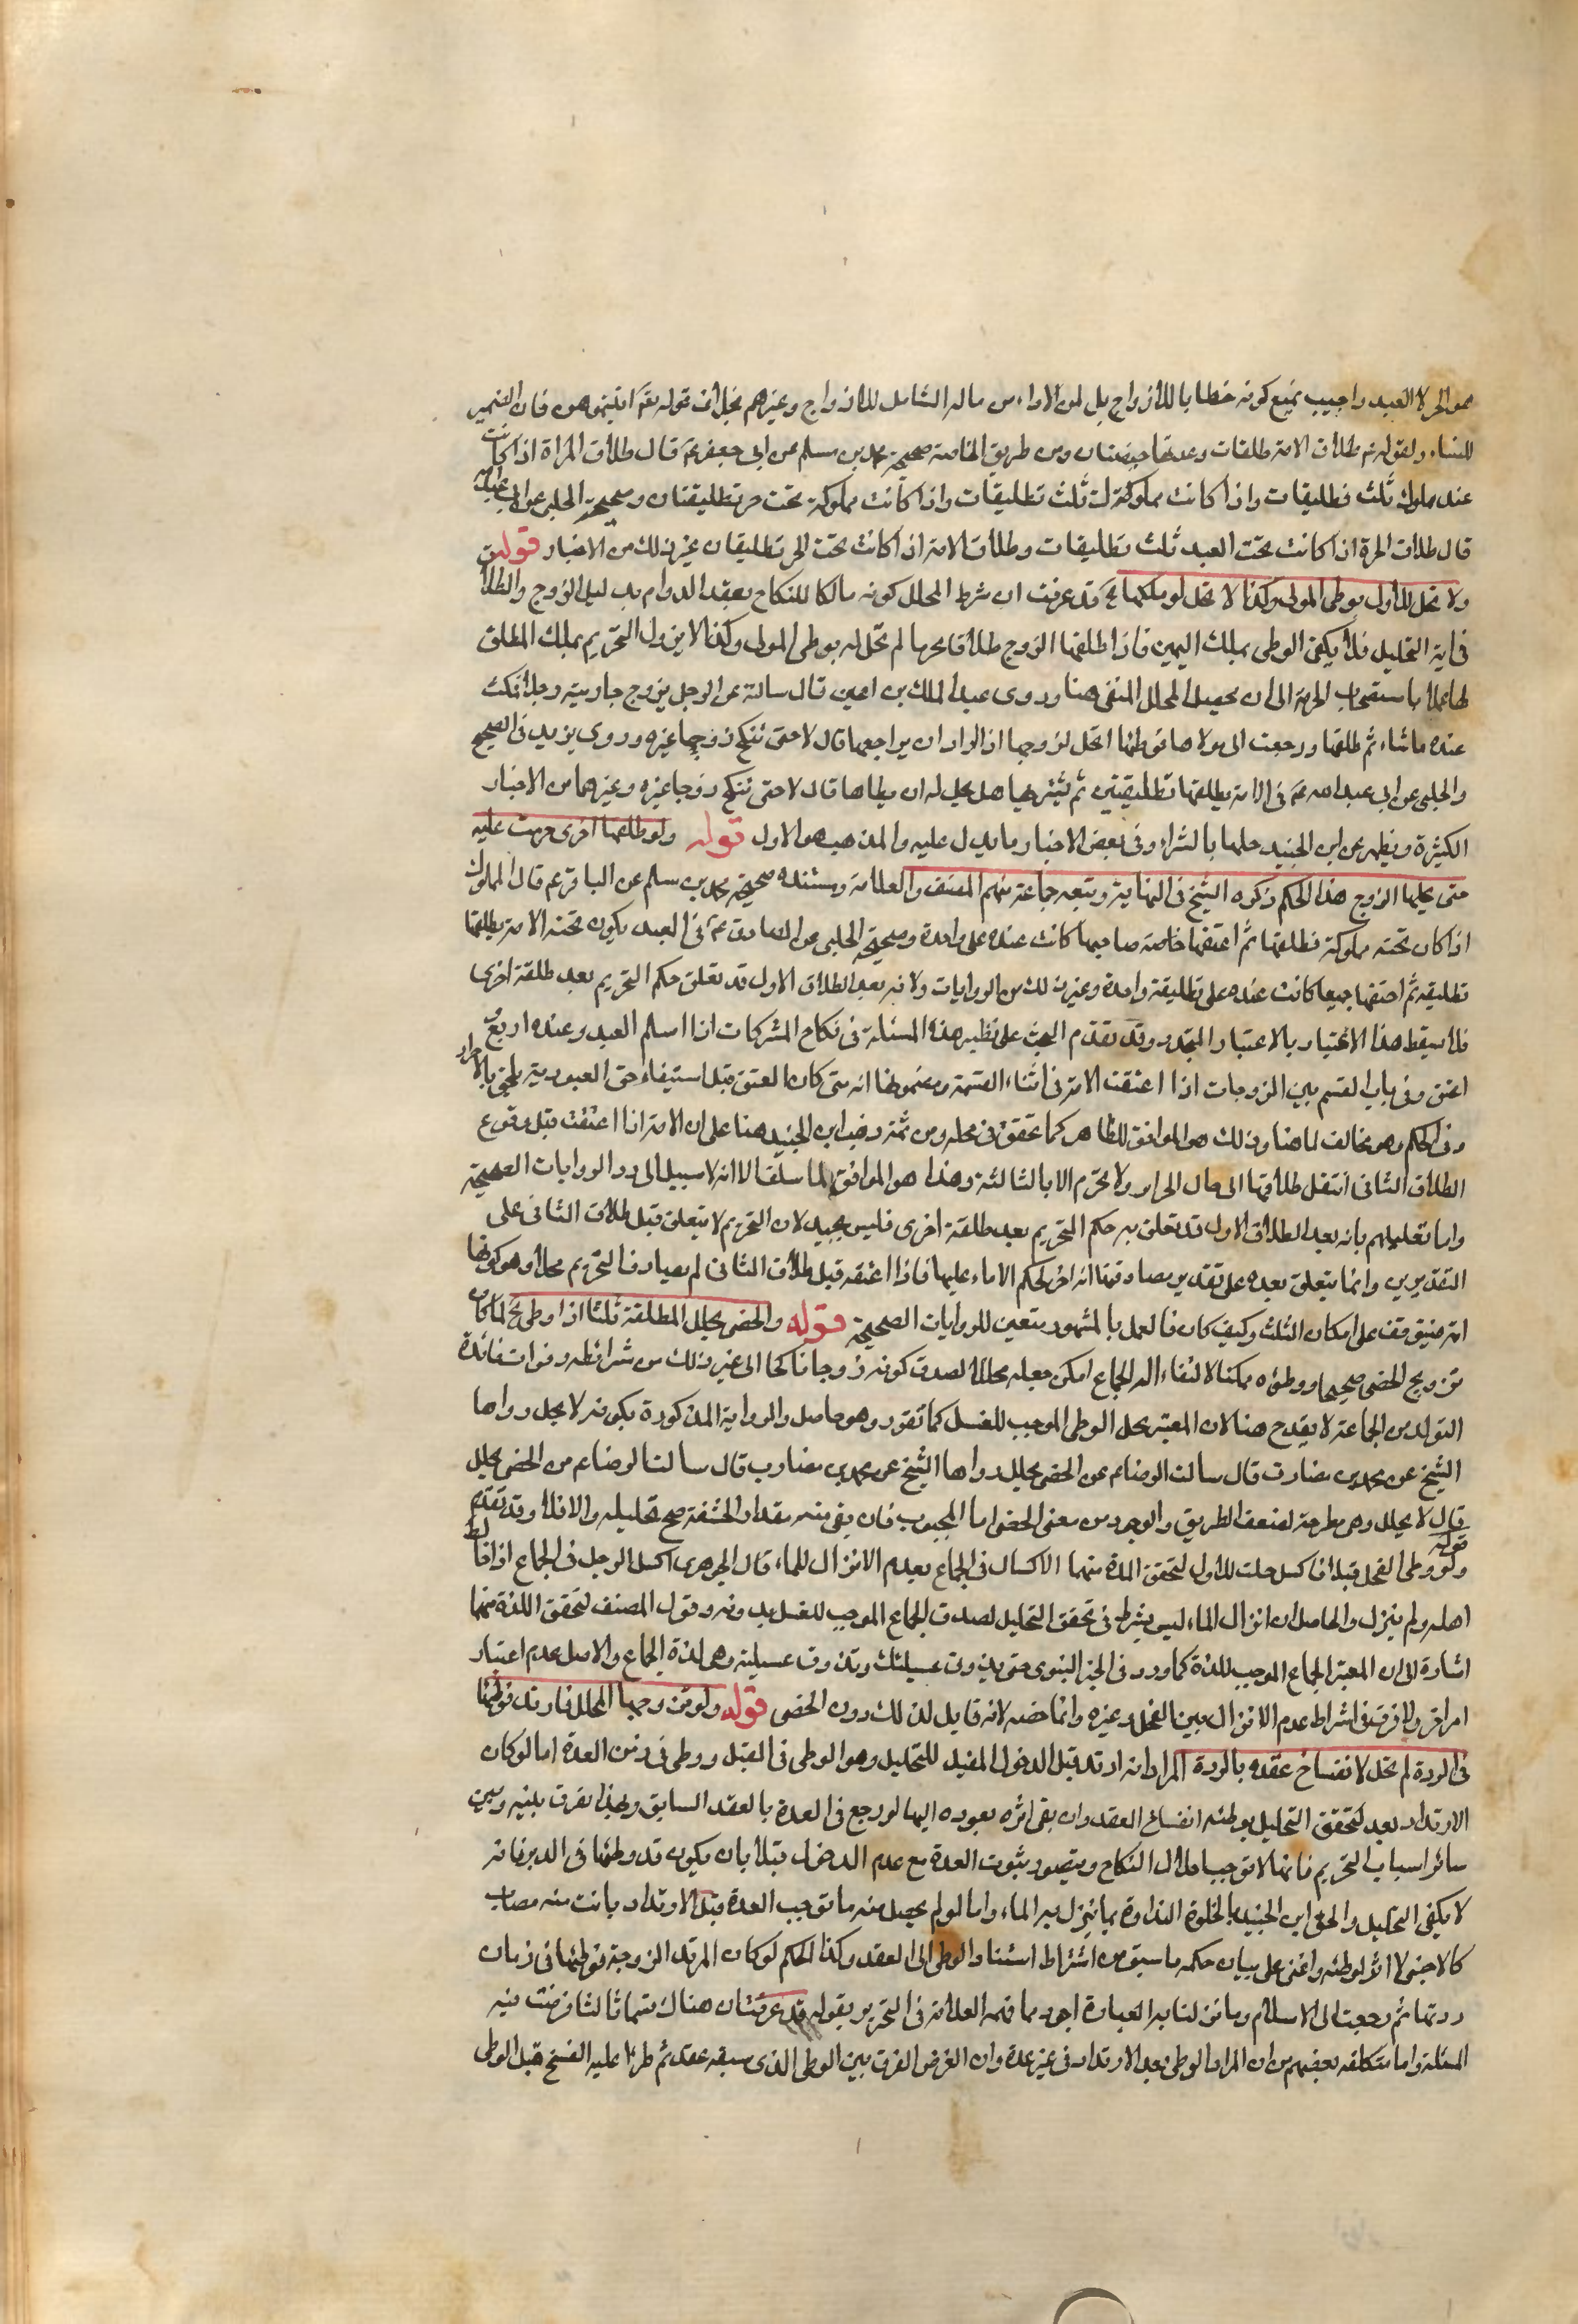 هو الحر لا العبد واجيب بمنع كونه خطابا للازواج بل لمن الاداء من ماله الشامل للازواج وغيرهم بخلاف قوله تعم اتيتموهن فان الضمير
للنساء ولقوله ص طلاق الامة طلقات وعدتها حيضتان ومن طريق الخاصة صحيحة محمد بن مسلم عن ابي جعفر عم قال طلاق المراة اذا كانت
عند مملوك ثلث تطليقات واذا كانت مملوكة ثلث تطليقات واذا كانت مملوكة تحت حر تطليقتان وصحيحة الحلبي عن ابي عبد الله
قال طلاق الحرة اذا كانت تحت العبد ثلث تطليقات وطلاق الامة اذا كانت تحت الحر تطليقتان وغير ذلك من الاخبار قوله
ولا تحل للاول بوطى المولى وكذا لا تحل لو ملكها الخ قد عرفت ان شرط المحلل كونه مالكا للنكاح بعقد الدوام بدليل الزوج والطلاق
فى اية التحليل فلا يكفى الوطى بملك اليمين فاذا طلقها الزوج طلاقا محرما لم تحل له بوطى المولى وكذا لا يزول التحريم بملك المطلق
لها عملا باستصحاب الحرمة الى ان يحصل المحلل المنفى هنا وروى عبد الملك بن اعين قال سالته عن الرجل يزوج جاريته رجلا فمكث
عنده ما شاء ثم طلقها ورجعت الى مولاها فوطئها اتحل لزوجها اذا اراد ان يراجعها قال لا حتى تنكح زوجا غيره وروى بريد فى الصحيح
والحلبى عن ابى عبد الله عم فى الامة يطلقها تطليقتين ثم يشتريها هل يحل له ان يطاها قال لا حتى تنكح زوجا غيره وغيرهما من الاخبار
الكثيرة ويظهر عن ابن الجنيد حلها بالشراء وفى بعض الاخبار ما يدل عليه والمذهب هو الاول قوله ولو طلقها اخرى حرمت عليه
حتى يحلها الزوج هذا الحكم ذكره الشيخ فى النهاية وتبعه جماعة منهم المصنف والعلامة ومستنده صحيحة محمد بن مسلم عن الباقر عم قال المملوك
اذا كان تحته مملوكة فطلقها ثم اعتقها خاصة صاحبها كانت عنده على واحدة وصحيحة الحلبى عن الصادق عم فى العبد يكون تحته الامة يطلقها
تطليقة ثم اعتقا جميعا كانت عنده على تطليقة واحدة وغير ذلك من الروايات ولانه بعد الطلاق الاول قد تعلق حكم التحريم بعد طلقة اخرى
فلا يسقط هذا الاختيار بالاعتبار المتجدد وقد تقدم البحث على نظير هذه المسئلة فى نكاح المشركات اذا اسلم العبد وعنده اربع
اعتق وفى باب القسم بين الزوجات اذا اعتقت الامة فى اثناء القسمة ومضموطها انه متى كان العتق قبل استيفاء حق العبودية يلحق بالاحرار
فى الحكم وهو مخالف لما هنا وذلك هو الموافق للظاهر كما تحقق فى محله ومن ثمة ذهب ابن الجنيد هنا على ان الامة اذا اعتقت قبل وقوع
الطلاق الثانى انتقل طلاقها الى حال الحرار ولا يحرم الا بالثالثة وهذا هو الموافق لما سلف الا انه لا سبيل الى رد الروايات الصحيحة
واما تعليلهم بانه بعد الطلاق الاول قد تعلق به حكم التحريم بعد طلقة اخرى فليس بجيد لان التحريم لا يتعلق قبل طلاق الثانى على
التقديرين وانما يتعلق بعده على تقدير مصادفتها لحكم الاماء عليها فاذا اعتقه قبل طلاق الثانى لم يصادف التحريم محلا وهو كونها
امة فيتوقف على امكان الثلث وكيف كان فالعمل بالمشهور متعين للروايات الصحيحة قوله والخصى يحلل المطلقة ثلثا اذا وطى الخ لما كان
تزويج الخصى صحيحا ووطؤه ممكنا لالتقاء الة الجماع امكن جعله محللا لصدق كونه زوجا ناكحا الى غير ذلك من شرائطه وفوات فائدة
التولد من الجماعة لا يقدح هنا لان المعتبر يحل الوطى الموجب للغسل كما تقرر وهو حاصل والرواية المذكورة بكونه لا يحل رواها
الشيخ عن محمد بن مضارب قال سالت الرضا عم عن الخصى يحلل رواها الشيخ عن محمد بن مضارب قال سالت الرضا عم من الخصى يحلل
قال لا يحلل وهى مطرحة لضعف الطريق والوجود من معنى الخصى اما المجبوب فان بقى منه مقدار الحشفة صح تحليله والا فلا وقد تقدم
قوله ولو وطى الفحل قبلا فاكسل حلت للاول لتحقق اللذة منهما الاكسال فى الجماع بعدم الانزال للماء قال الجوهرى اكسل الرجل فى الجماع اذا خالط
اهله ولم ينزل والحاصل ان انزال الماء ليس بشرط فى تحقق التحليل لصدق الجماع الموجب للغسل بدونه وقول المصنف لتحقق اللذة منهما
اشارة الى ان المعتبر الجماع الموجب للذة كما ورد فى الخبر النبوى حتى يذوق عسيلتك وتذوق عسيلته وهى لذة الجماع والاصل عدم اعتبار
امر اخر ولا فرق فى اشتراط عدم الانزال بين الفحل وغيره وانما خصه لانه قابل لذلك دون الخصى قوله ولو تزوجها المحلل فارتد فوطئها
فى الردة لم تحل لانفساخ عقده بالردة المراد انه ارتد قبل الدخول المفيد للتحليل وهو الوطى فى القبل ووطى فى زمن العدة اما لو كان
الارتداد بعد لتحقق التحليل بوطئه انفساخ العقد وان بقى اثره بعوده اليها لو رجع فى العدة بالعقد السابق وبهذا يفرق بينه وبين
سائر اسباب التحريم فانها لا توجب ابطال النكاح ويتصور ثبوت العدة مع عدم الدخول قبلا بان يكون قد وطئها فى الدبر فانه
لا يكفى التحليل والحق ابن الجنيد الخلوة التذاذه بما ينزل به الماء واما لو لم يحصل منه ما توجب العدة قبل الارتداد بانت منه فصار
كالاجنبى لا اثر لوطئه واغنى على بيان حكمه ما سبق من اشتراط استناد الوطى الى العقد وكذا الحكم لو كان المرتد الزوجة فوطئها فى زمان
ردتها ثم رجعت الى الاسلام وما نزلنا به العبارة اجود مما فهمه العلامة فى التحرير بقوله قد عرفت ان هناك قسما ثالثا فرضت فيه
المسئلة واما ما تكلفه بعضهم من ان المراد الوطى بعد الارتداد فى غير عدة وان الغرض الفرق بين الوطى الذى سبقه عقد ثم طرء عليه الفسخ قبل الوطى